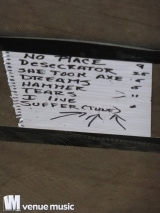 NO PLACE
DESECRATOR
SHE TOOK AXE
DREAMS
HAMMER
TEARS
I
SUFFER (TUNE)
venue music